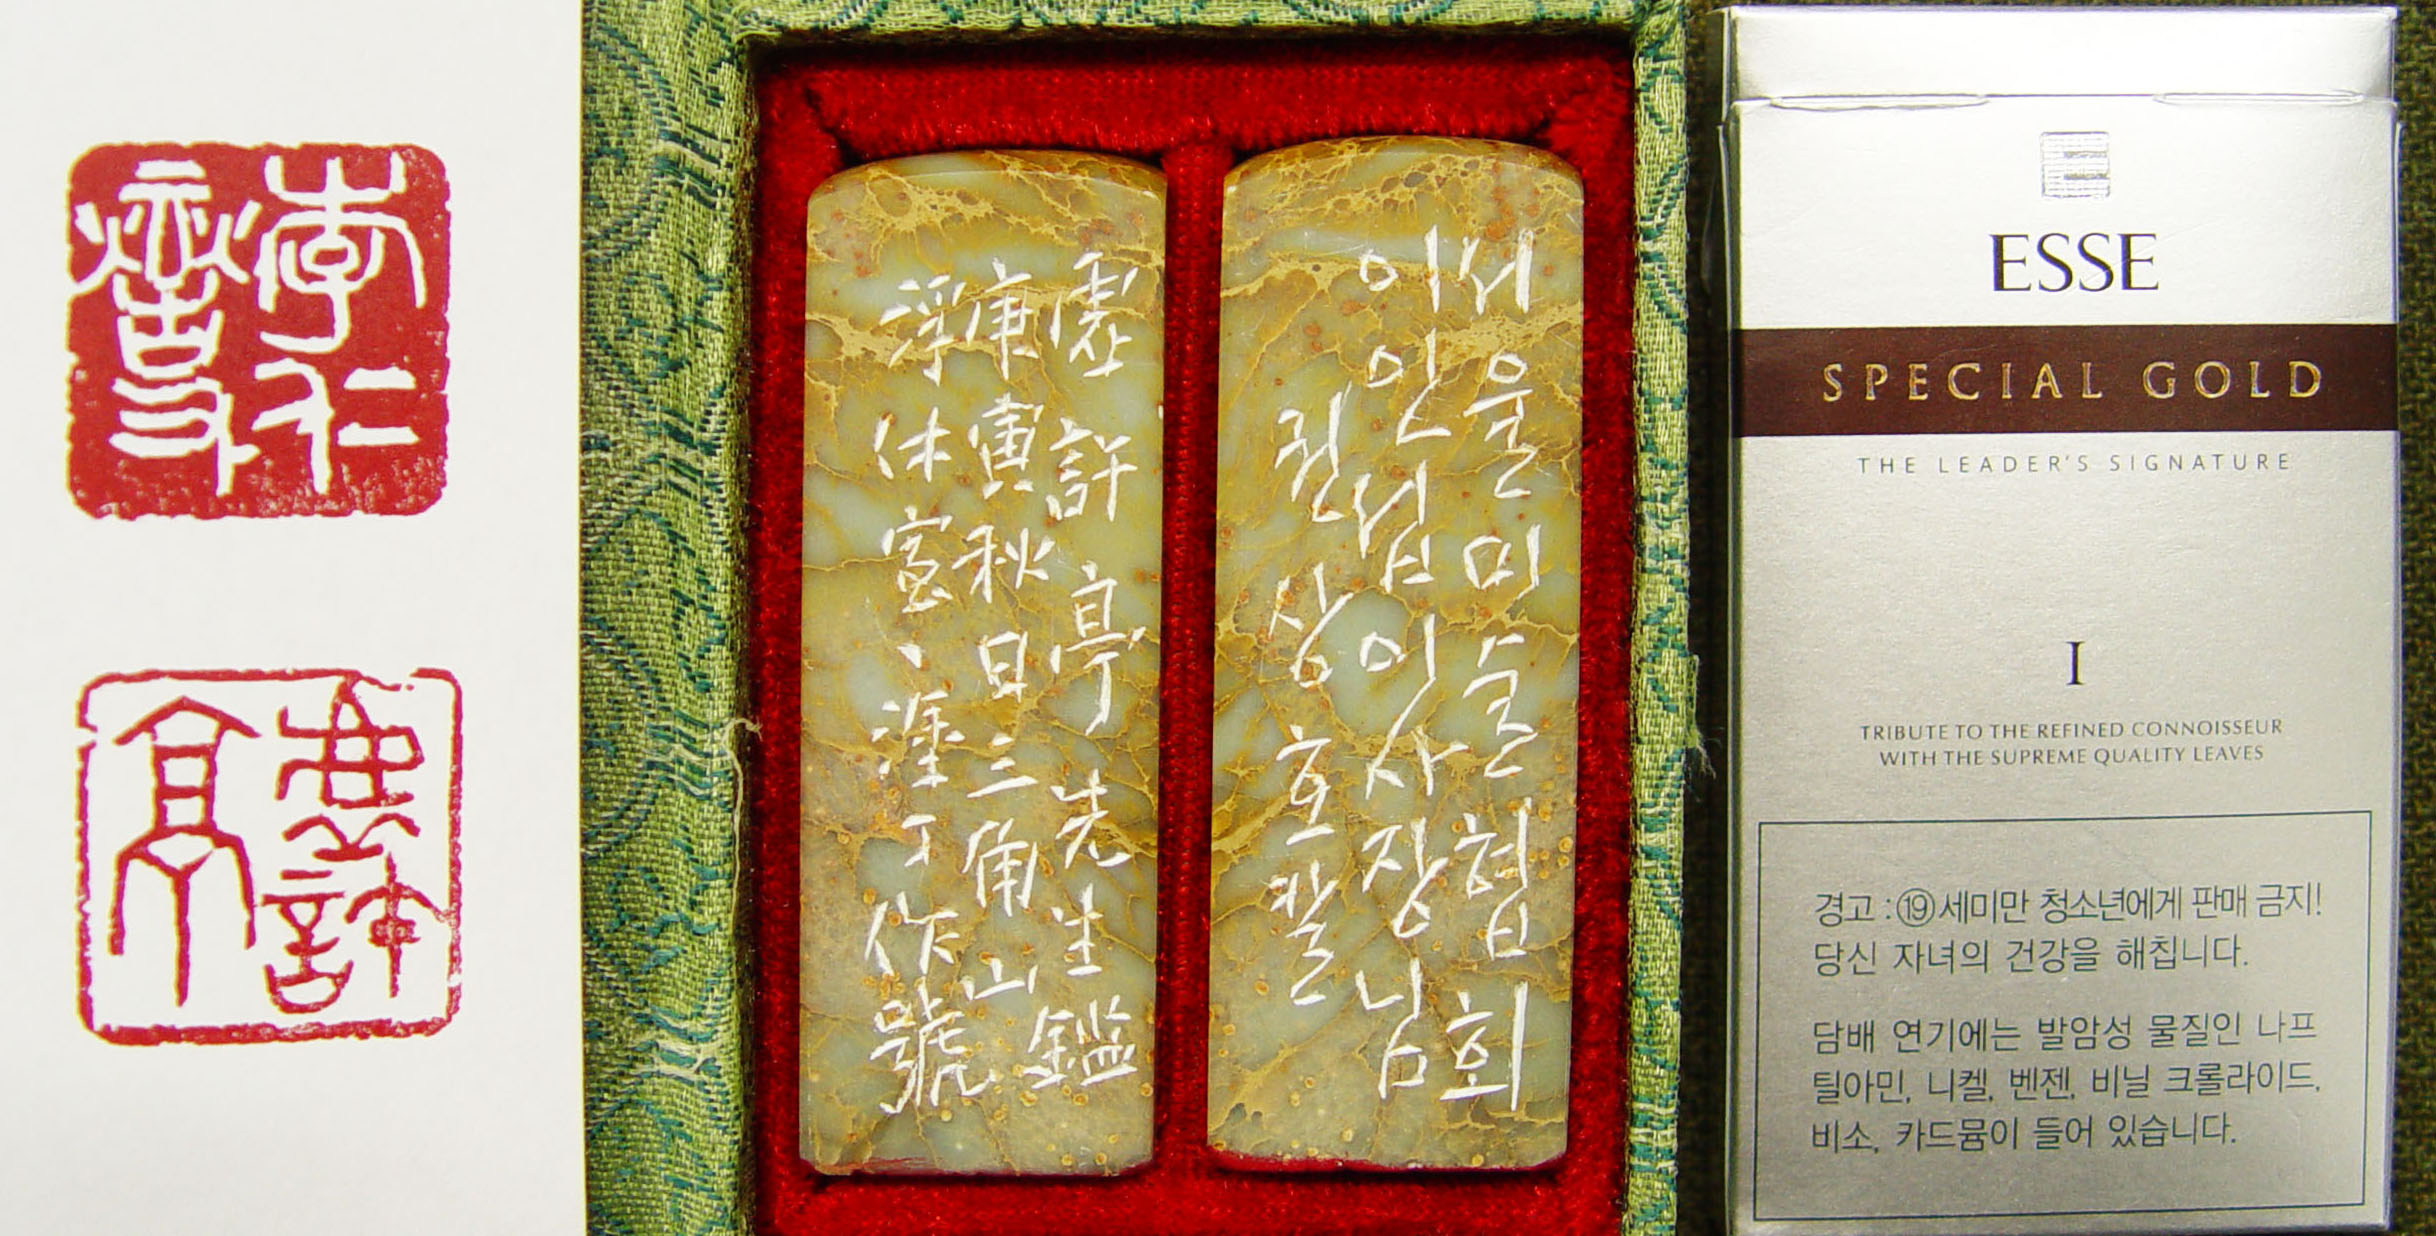 李仁
燮
虛許
亭
虛許亭先生鑑
庚寅秋日三角山
浮休、塗丁作號
서울미술협회
이인섭이사장님
권상호칼
ESSE
SPECIAL GOLD
THE LEADER'S SIGNATURE
I
TRIBUTE TO THE REFINED CONNOISSEUR
WITH THE SUPREME QUALITY LEAVES
경고 : ⑲세미만 청소년에게 판매 금지!
당신 자녀의 건강을 해칩니다.
담배 연기에는 발암성 물질인 나프
틸아민, 니켈, 벤젠, 비닐 크롤라이드,
비소, 카드뮴이 들어 있습니다.